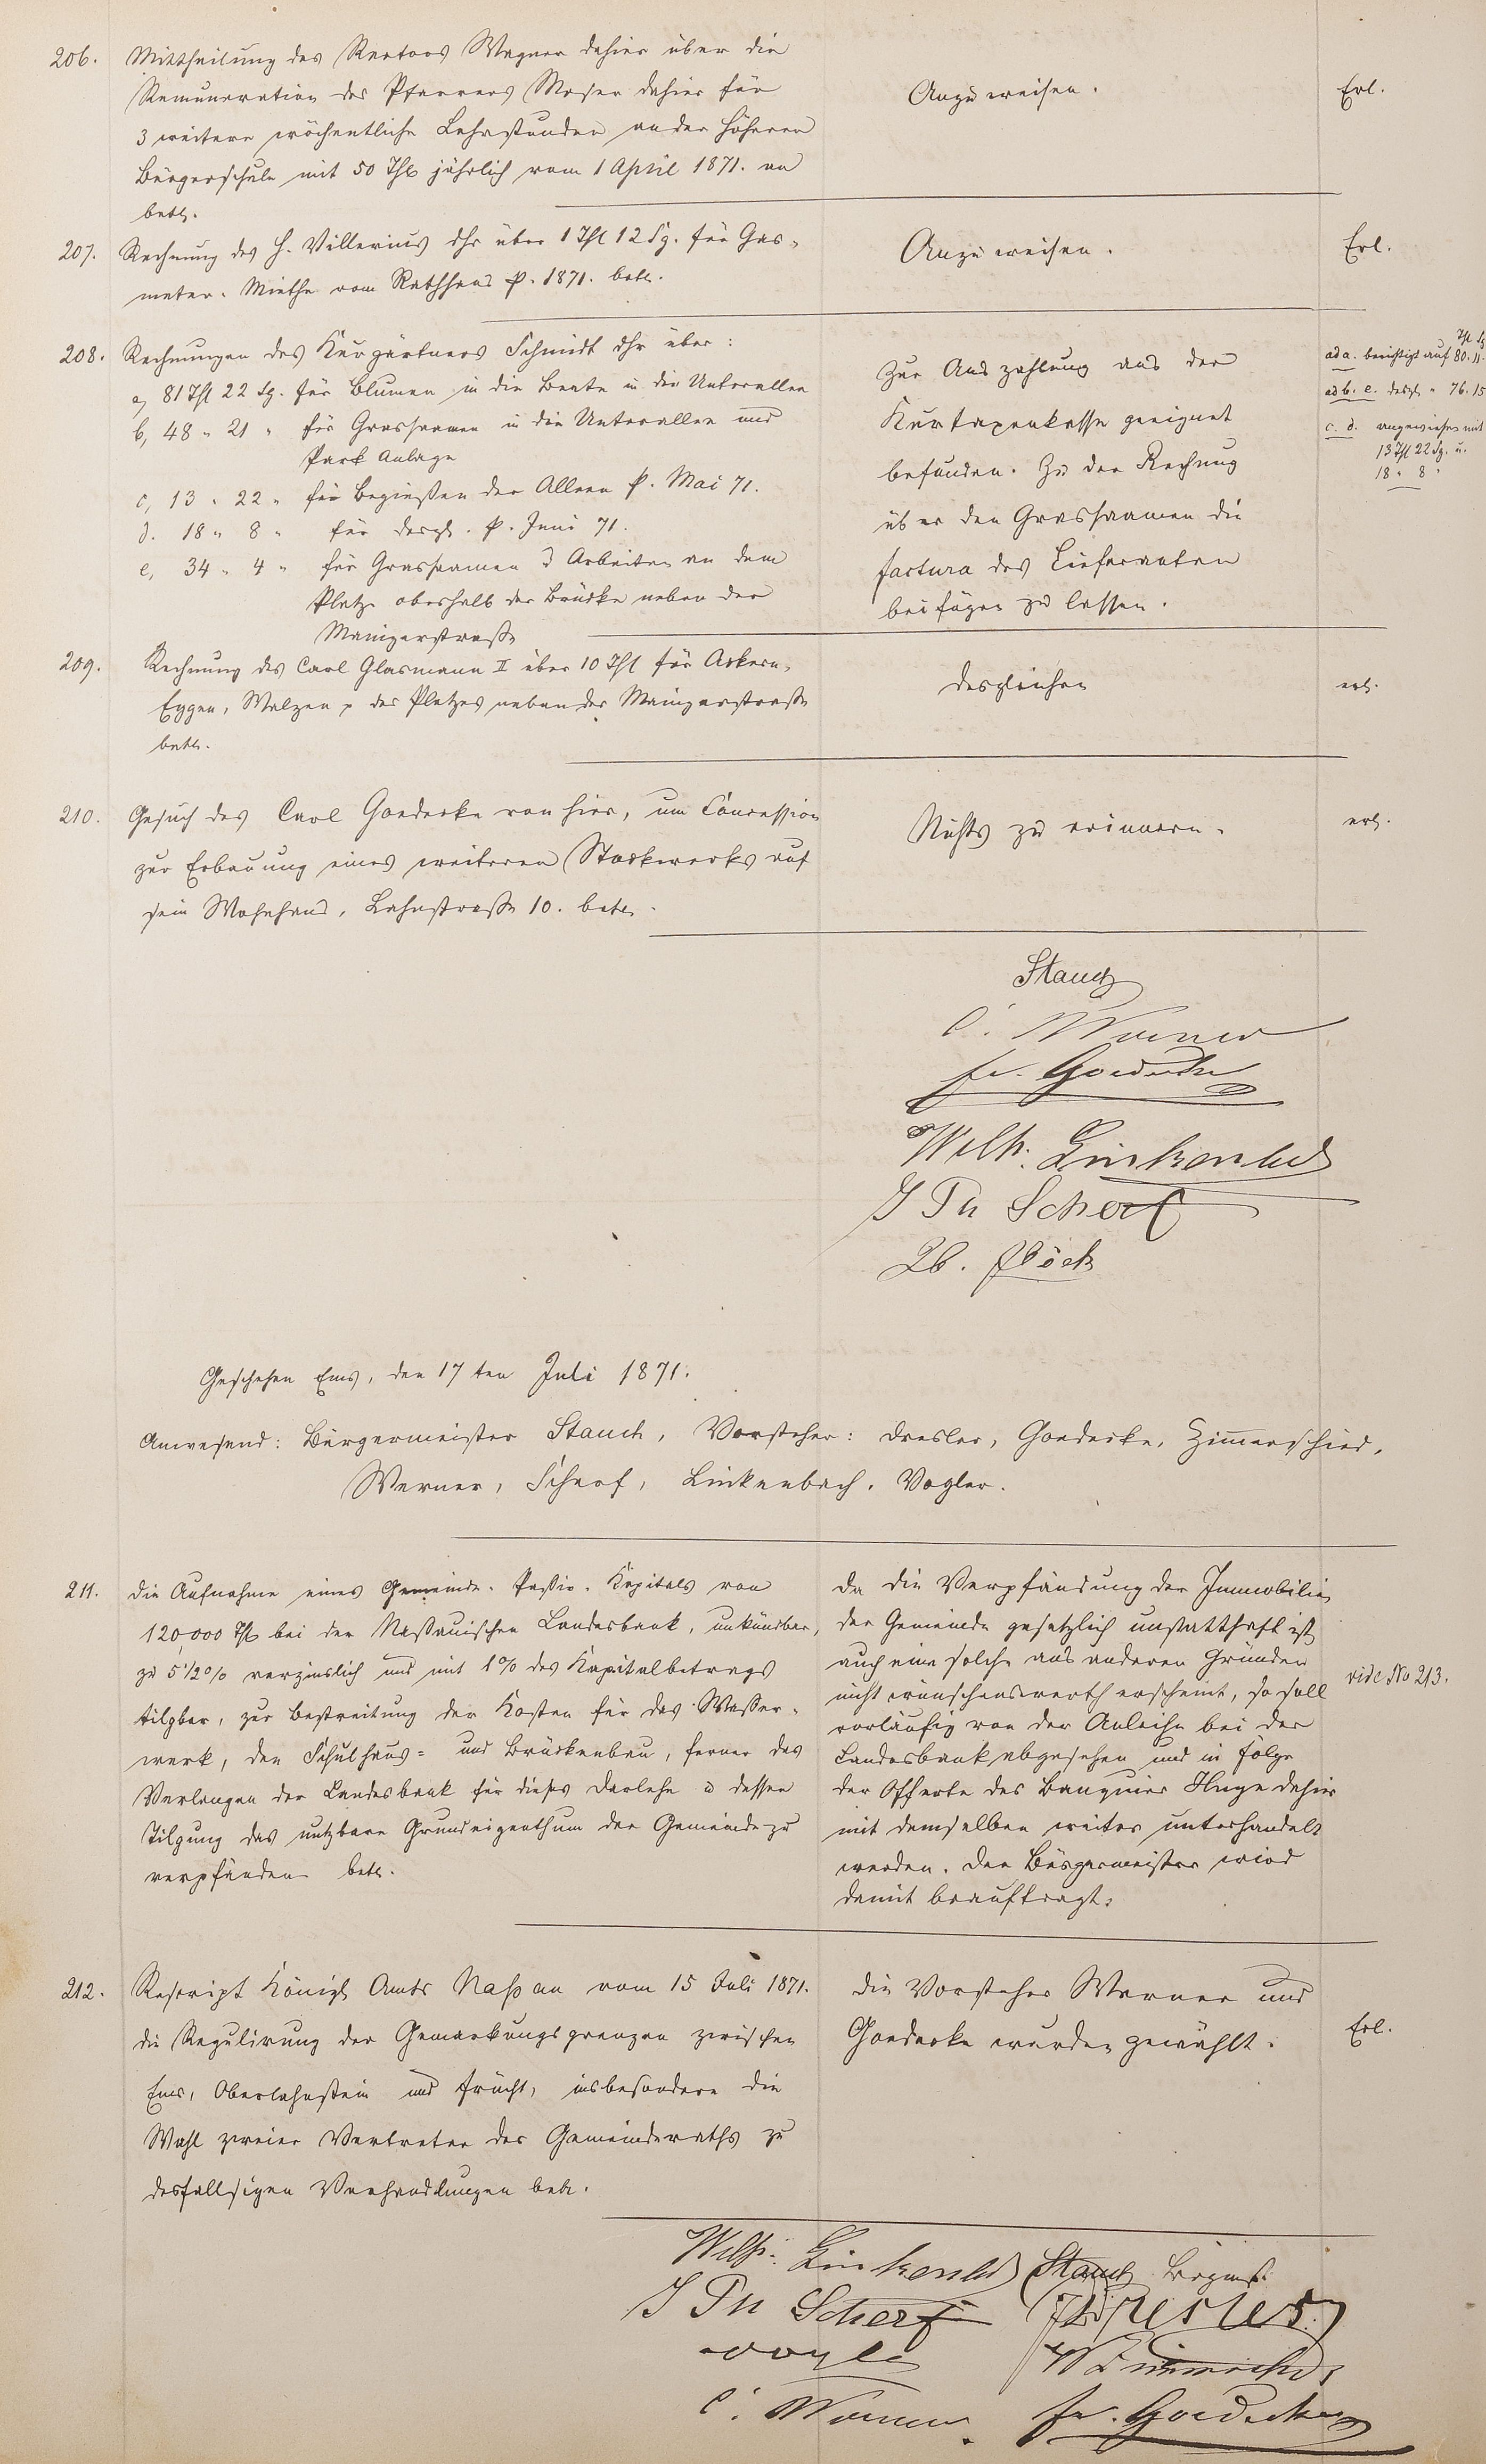 206.
Mittheilung des Rectors Wagner dahier über die
Remuneration des Pfarrers Moser dahier für
3 weitere wöchentliche Lehrstunden an der höheren
Bürgerschule mit 50 Thlr jährlich vom 1 April 1871. an
betr.
Anzuweisen.
Erl.
207.
Rechnung des H. Villerius dhr über 1 Thl 12 Sg. für Gas-
meter-Miethe vom Rathhaus p. 1871. betr.
Anzuweisen.
Erl.
208.
Rechnungen des Kurgärtners Schmidt dhr über:
a, 81 Thl 22 Sg. für Blumen in die Beete in die Unterallee
b, 48 " 21 " für Grassaamen in die Unterallee und
Park Anlage
c, 13 " 22 " für Begießen der Alleen p. Mai 71.
d. 18 " 8 " für desgl. p. Juni 71.
e, 34 " 4 " für Grassaamen & Arbeiten an dem
Platze oberhalb der Brücke neben der
Mainzerstraße
Zur Auszahlung aus der
Kurtaxenkasse geeignet
befunden. Zu der Rechnung
über den Grassaamen die
factura des Lieferanten
beifügen zu lassen.
Thl Sg
ad a. berichtigt auf 80. 11.
ad b. e. desgl. " 76. 15
c. d. angewiesen mit
13 Thl 22 Sg. u.
18 " 8 "
209.
Rechnung des Carl Glasmann II über 10 Thl für Ackern,
Eggen, Walzen p des Platzes neben der Mainzerstraße
betr.
desgleichen
erl.
210.
Gesuch des Carl Goedecke von hier, um Concession
zur Erbauung eines weiteren Stockwerks auf
sein Wohnhaus, Lahnstraße 10. betr.
Nichts zu erinnern.
erl.
Stauch
C. Werner
Fr. Goedecke
Wilh. Linkenbach
J Ph Scherf
Lb. Flöck
Geschehen Ems, den 17ten Juli 1871.
Anwesend: Bürgermeister Stauch, Vorsteher: Dresler, Goedecke, Zimmerschied,
Werner, Scherf, Linkenbach, Vogler.
211.
Die Aufnahme eines Gemeinde-Passiv-Kapitals von
120,000 Thlr bei der Nassauischen Landesbank, unkündbar,
zu 5 1/2 % verzinslich und mit 1 % des Kapitalbetrags
tilgbar, zur Bestreitung der Kosten für das Wasser-
werk, den Schulhaus= und Brückenbau, ferner das
Verlangen der Landesbank für dieses Darlehn & dessen
Tilgung das nutzbare Grundeigenthum der Gemeinde zu
verpfänden betr.
Da die Verpfändung der Immobilien
der Gemeinde gesetzlich unstatthaft ist
auch eine solche aus anderen Gründen
nicht wünschenswerth erscheint, so soll
vorläufig von der Anleihe bei der
Landesbank abgesehen und in Folge
der Offerte des Banquier Huge dahier
mit demselben weiter unterhandelt
werden. Der Bürgermeister wird
damit beauftragt.
vide No 213.
212.
Rescript Königl Amts Nassau vom 15 Juli 1871.
die Regulirung der Gemarkungsgrenzen zwischen
Ems, Oberlahnstein und Frücht, insbesondere die
Wahl zweier Vertreter des Gemeinderaths zu
desfallsigen Verhandlungen betr.
Die Vorsteher Werner und
Goedecke wurden gewählt.
Erl.
Wilh. Linkenbach Stauch Brgmst.
J Ph Scherf Dresler
Vogler W Zimmerschied
C. Werner Fr. Goedecke